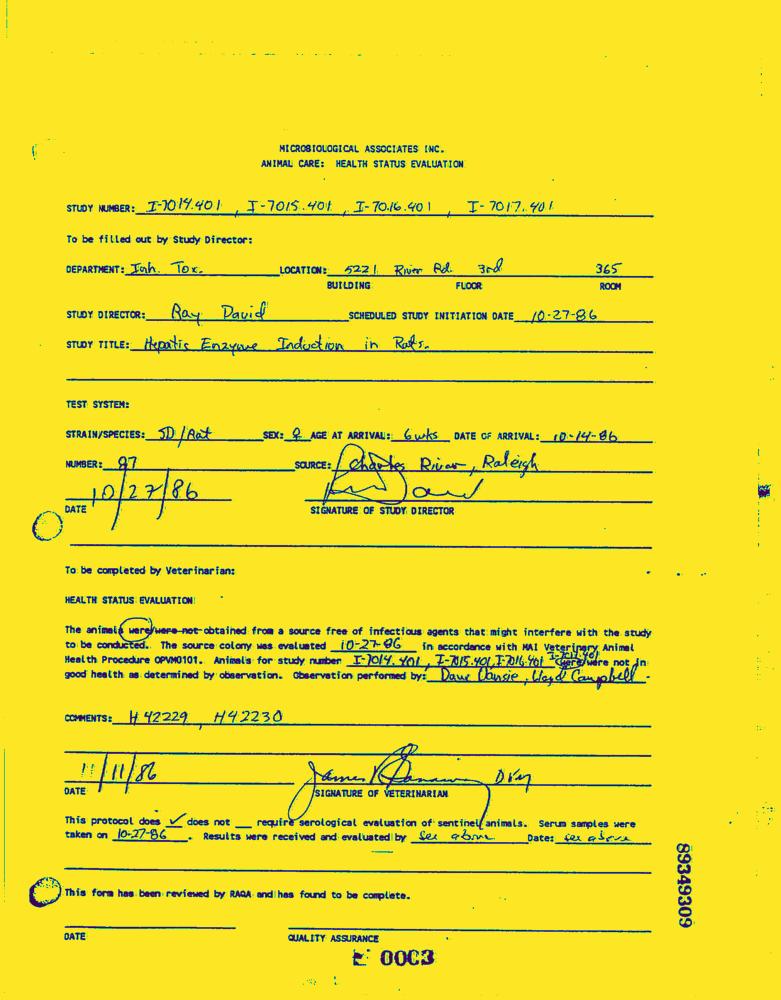 MICROBIOLOGICAL ASSOCIATES INC.
ANIMAL CARE: HEALTH STATUS EVALUATION
STUDY NUMBER: I-7014.401, I-7015.401, I-7016.401, I-7017.401
To be filled out by Study Director:
DEPARTMENT: Inh. Tox. LOCATION: 5221 River Rd. 3rd 365
BUILDING FLOOR ROOM
STUDY DIRECTOR: Ray David SCHEDULED STUDY INITIATION DATE 10-27-86
STUDY TITLE: Hepatic Enzyme Induction in Rats.
TEST SYSTEM:
STRAIN/SPECIES: SD/Rat SEX: ♀ AGE AT ARRIVAL: 6 wks DATE OF ARRIVAL: 10-14-86
NUMBER: 87 SOURCE: Charles River, Raleigh
10/27/86
DATE SIGNATURE OF STUDY DIRECTOR
To be completed by Veterinarian:
HEALTH STATUS EVALUATION:
The animals were/were not obtained from a source free of infectious agents that might interfere with the study
to be conducted. The source colony was evaluated 10-27-86 in accordance with MAI Veterinary Animal
Health Procedure OPVM0101. Animals for study number I-7014.401, I-7015.401, I-7016.401 I-7017.401 were/were not in
good health as determined by observation. Observation performed by: Dave Vansie, Lloyd Campbell
COMMENTS: H 42229, H42230
11/11/86 James DVM
DATE SIGNATURE OF VETERINARIAN
This protocol does ✓ does not __ require serological evaluation of sentinel animals. Serum samples were
taken on 10-27-86. Results were received and evaluated by see above Date: see above
This form has been reviewed by RAQA and has found to be complete.
DATE QUALITY ASSURANCE
0003
89349309